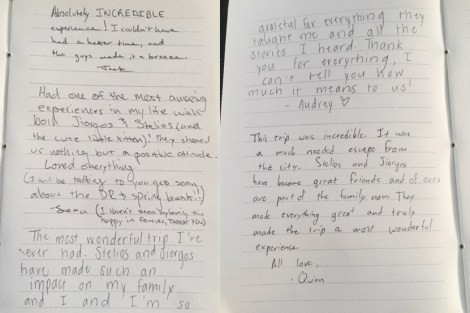 Absolutely INCREDIBLE
experience! I couldn't have
had a better time, and
the guys made it a breeze.
Had one of the most amazing
experiences in my life with
both Jiorgos & Stelios (and
the cute little kitten)! They showed
us nothing but a positive attitude.
Loved everything
(I will be talking to you guys soon
about the DR & spring break!!)
Sean (I haven't seen my family this
happy in forever, THANK YOU)
The most wonderful trip I've
ever had. Stelios and Jiorgos
have made such an
impact on my family
and I and I'm so
grateful for everything they
taught me and all the
stories I heard. Thank
you for everything, I
can't tell you how
much it means to us!
- Audrey ♡
This trip was incredible. It was
a much needed escape from
the city. Stelios and Jiorgos
have become great friends and of ours
are part of the family now. They
made everything great and truly
made the trip a most wonderful
experience.
All love,
- Quinn